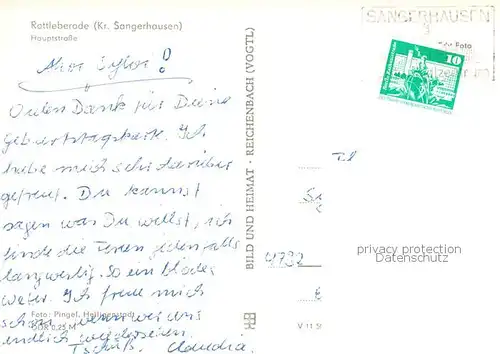 Rottleberode (Kr. Sangerhausen)
Hauptstraße
SANGERHAUSEN
Foto
10
Vielen Dank für Deine
Geburtstagskarte. Ich
habe mich sehr darüber
gefreut. Du kannst
sagen was Du willst, ich
finde die Ferien jedenfalls
langweilig. So ein blödes
Wetter. Ich freue mich
schon, wenn wir uns
endlich wiedersehen.
Tschüß, Claudia.
Foto: Pingel, Heiligenstadt
DDR 0,25 M
BILD UND HEIMAT · REICHENBACH (VOGTL)
V 11 5
privacy protection
Datenschutz